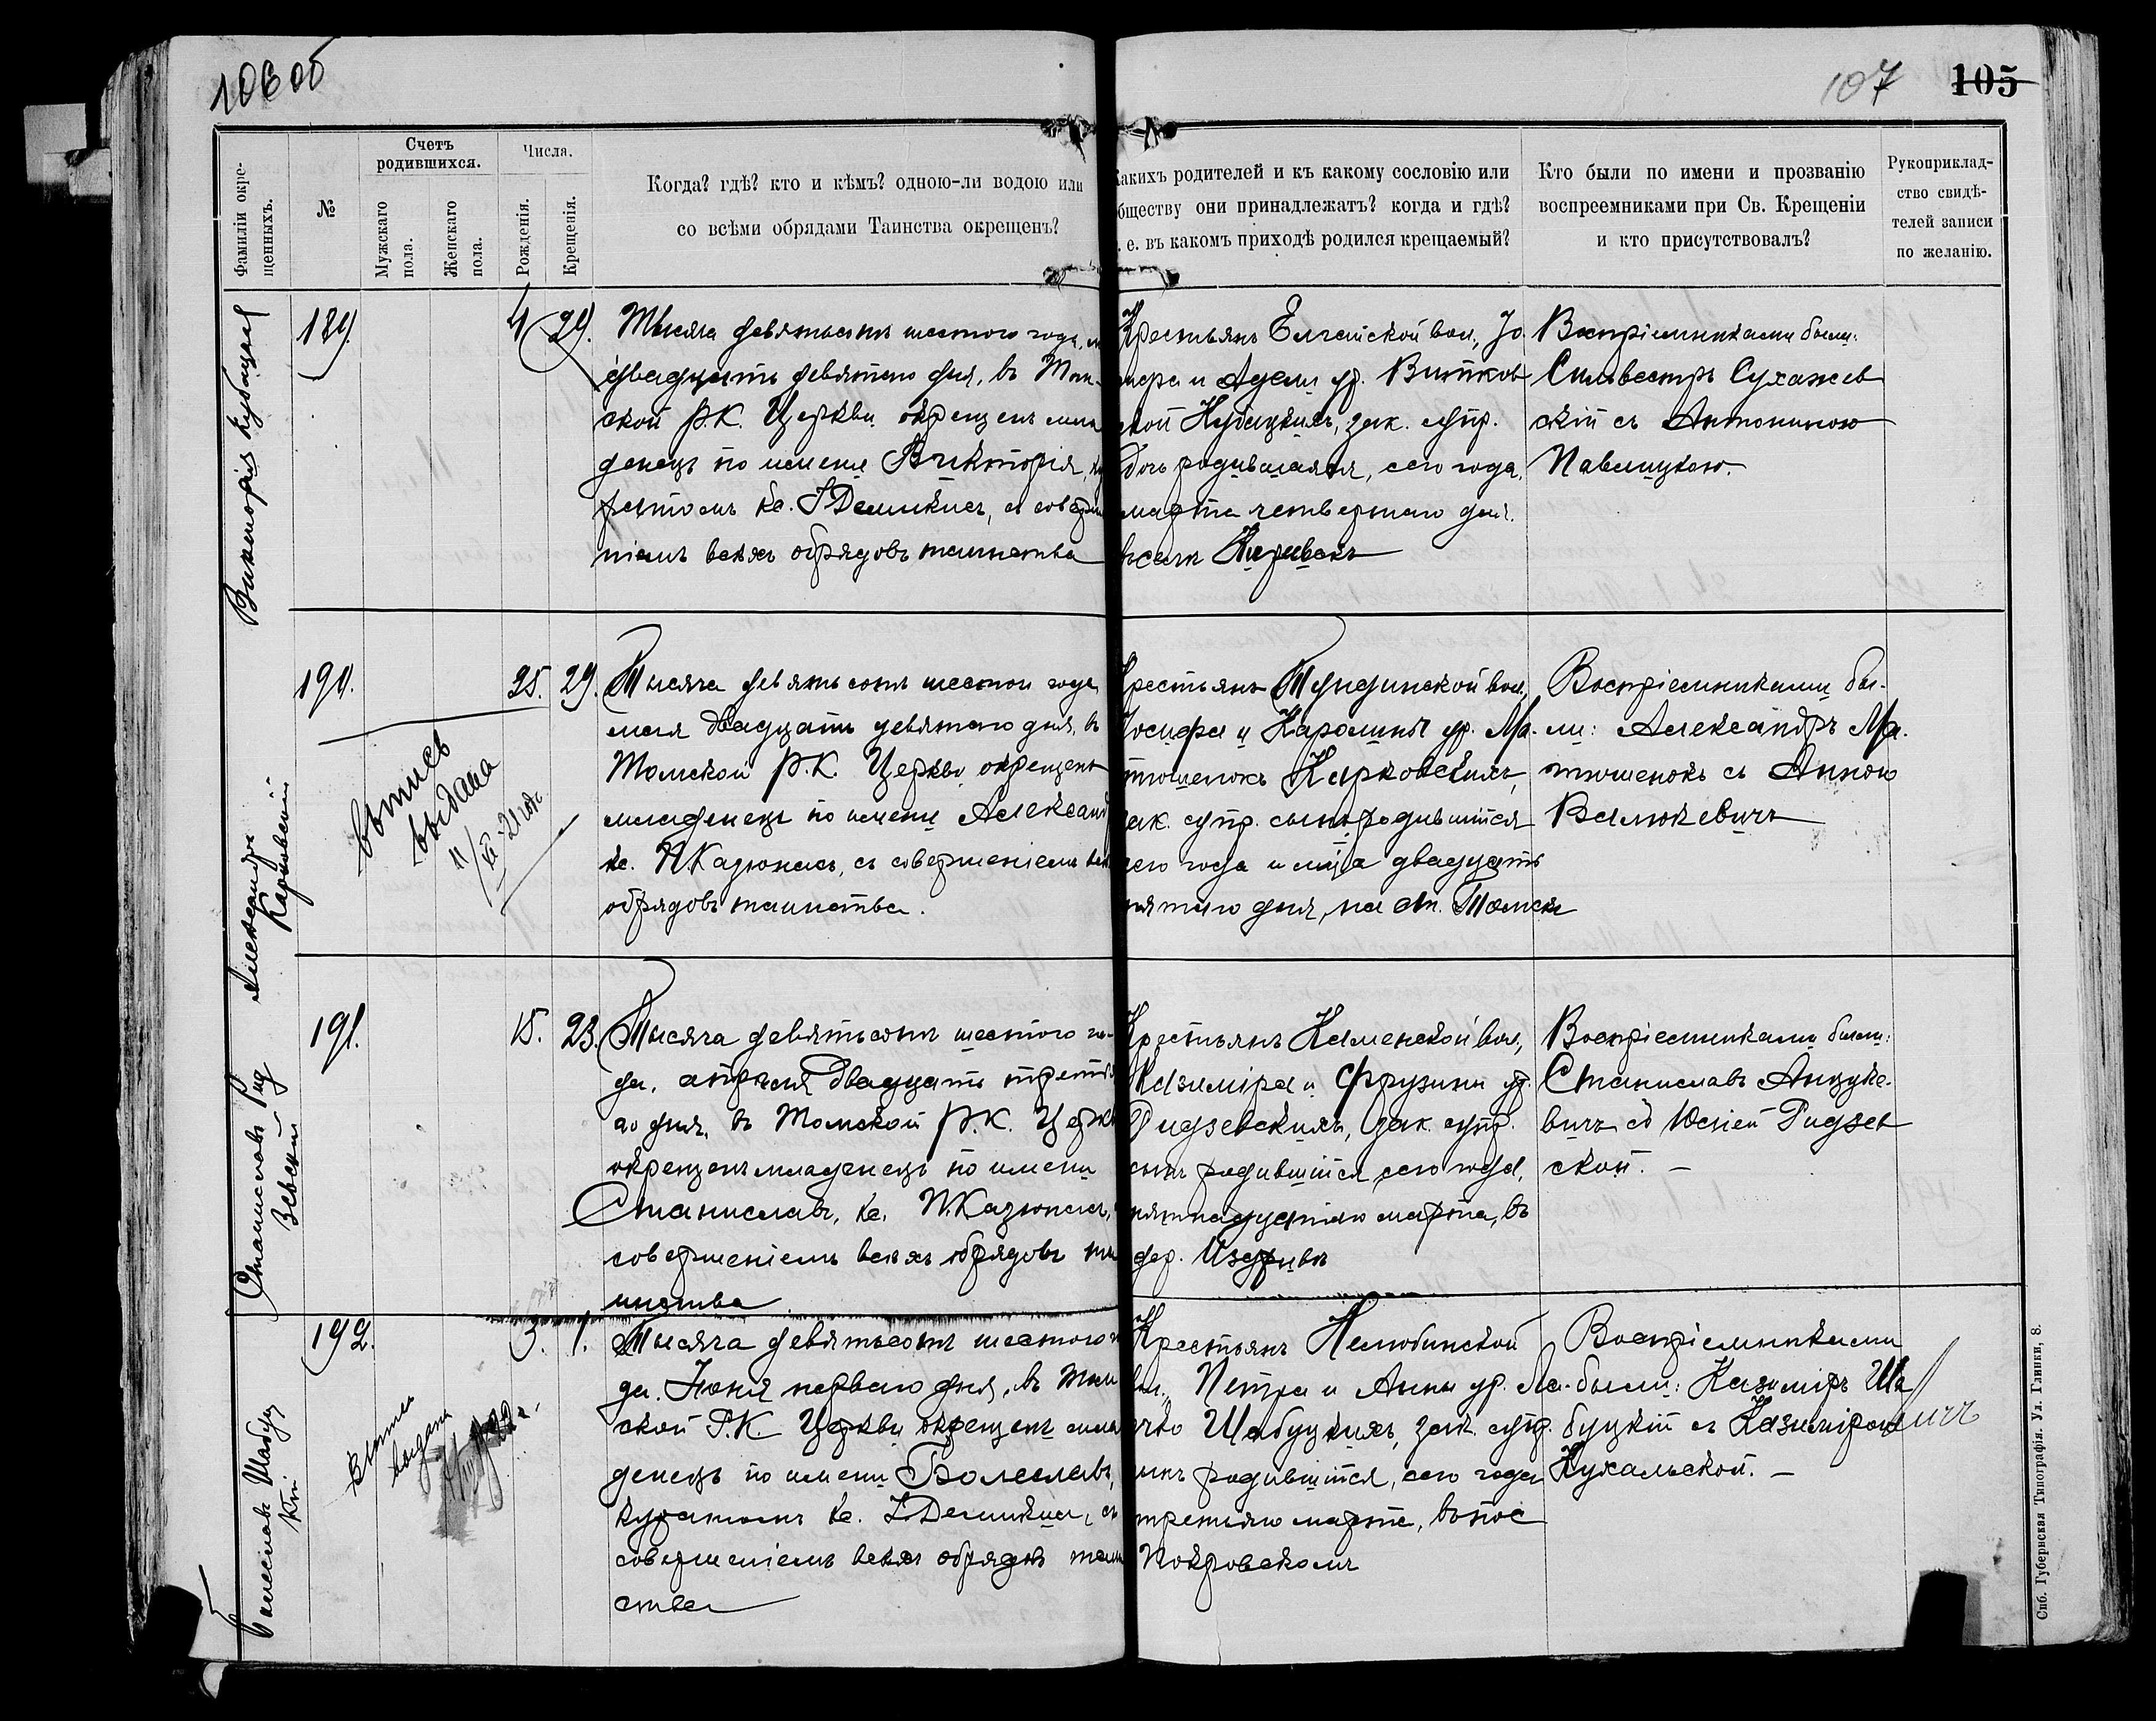 106 об
107 105
Фамиліи окре-
щенныхъ.
№
Счетъ
родившихся.
Мужскаго
пола.
Женскаго
пола.
Числа.
Рожденія.
Крещенія.
Когда? гдѣ? кто и кѣмъ? одною-ли водою или
со всѣми обрядами Таинства окрещенъ?
Какихъ родителей и къ какому сословію или
обществу они принадлежатъ? когда и гдѣ?
т. е. въ какомъ приходѣ родился крещаемый?
Кто были по имени и прозванію
воспреемниками при Св. Крещеніи
и кто присутствовалъ?
Рукоприклад-
ство свидѣ-
телей записи
по желанію.
Викторія Кубацкая
189.
4 29.
Тысяча девятьсотъ шестого года, м
двадцать девятаго дня, въ Том-
ской Р.К. Церкви окрещенъ мла
денецъ по имени Викторія,
ратомъ кс. І Демикисъ, съ соверш
ніемъ всѣхъ обрядовъ таинства
Крестьянъ Елгайской вол., Іо
сифа и Адели ур. Витков
ской Кубацкихъ, зак. супр.
дочь родившаяся, сего года,
марта четвертаго дня.
Воспріемниками были:
Сильвестръ Сухажев
скій съ Антониною
Павлицкою.
Александръ
Карповскій
190.
25. 29.
выпись
выдана
Тысяча девятьсотъ шестого года
мая двадцать девятаго дня, въ
Томской Р.К. Церкви окрещенъ
младенецъ по имени Александ
кс. Н.Казюнасъ, съ совершеніемъ всѣ
обрядовъ таинства.
Крестьянъ Тундинской вол.,
Іосифа и Каролины ур. Ма-
тюшенокъ Карповскихъ,
зак. супр. сынъ родившійся
сего года и мца двадцать
пятаго дня, на ст. Томскъ
Воспріемниками бы-
ли: Александръ Ма-
тюшенокъ съ Анною
Валюкевичъ
Станиславъ Рид
зевскій
191.
15. 23.
Тысяча девятьсотъ шестого го-
да, апрѣля двадцать третья
го дня, въ Томской Р.К. Церкв
окрещенъ младенецъ по имени
Станиславъ, кс. Н.Казюнасъ,
совершеніемъ всѣхъ обрядовъ та
инства
Крестьянъ Каменской вол.,
Казиміра и Фрузины ур.
Ридзевскихъ, зак. супр.
сынъ родившійся, сего года,
пятнадцатаго марта, въ
дер.
Воспріемниками были:
Станиславъ Анцуке-
вичъ съ Юзіей Ридзев
ской. —
Болеславъ Шабуц
кій
192.
3. 1.
Выпись
выдана
Тысяча девятьсотъ шестого го
да. Іюня перваго дня, въ Том
ской Р.К. Церкви окрещенъ мла
денецъ по имени Болеславъ,
куратомъ кс. І.Демикисъ, съ
совершеніемъ всѣхъ обрядовъ таин
ства
Крестьянъ Нелюбинской
вол., Петра и Анны ур. Ла-
чко Шабуцкихъ, зак. супр.
сынъ родившійся, сего года
третьяго марта, въ пос
Покровскомъ
Воспріемниками
были: Казиміръ Ша
буцкій съ Казимірою
Кухальской. —
Спб. Губернская Типографія. Ул. Глинки, 8.